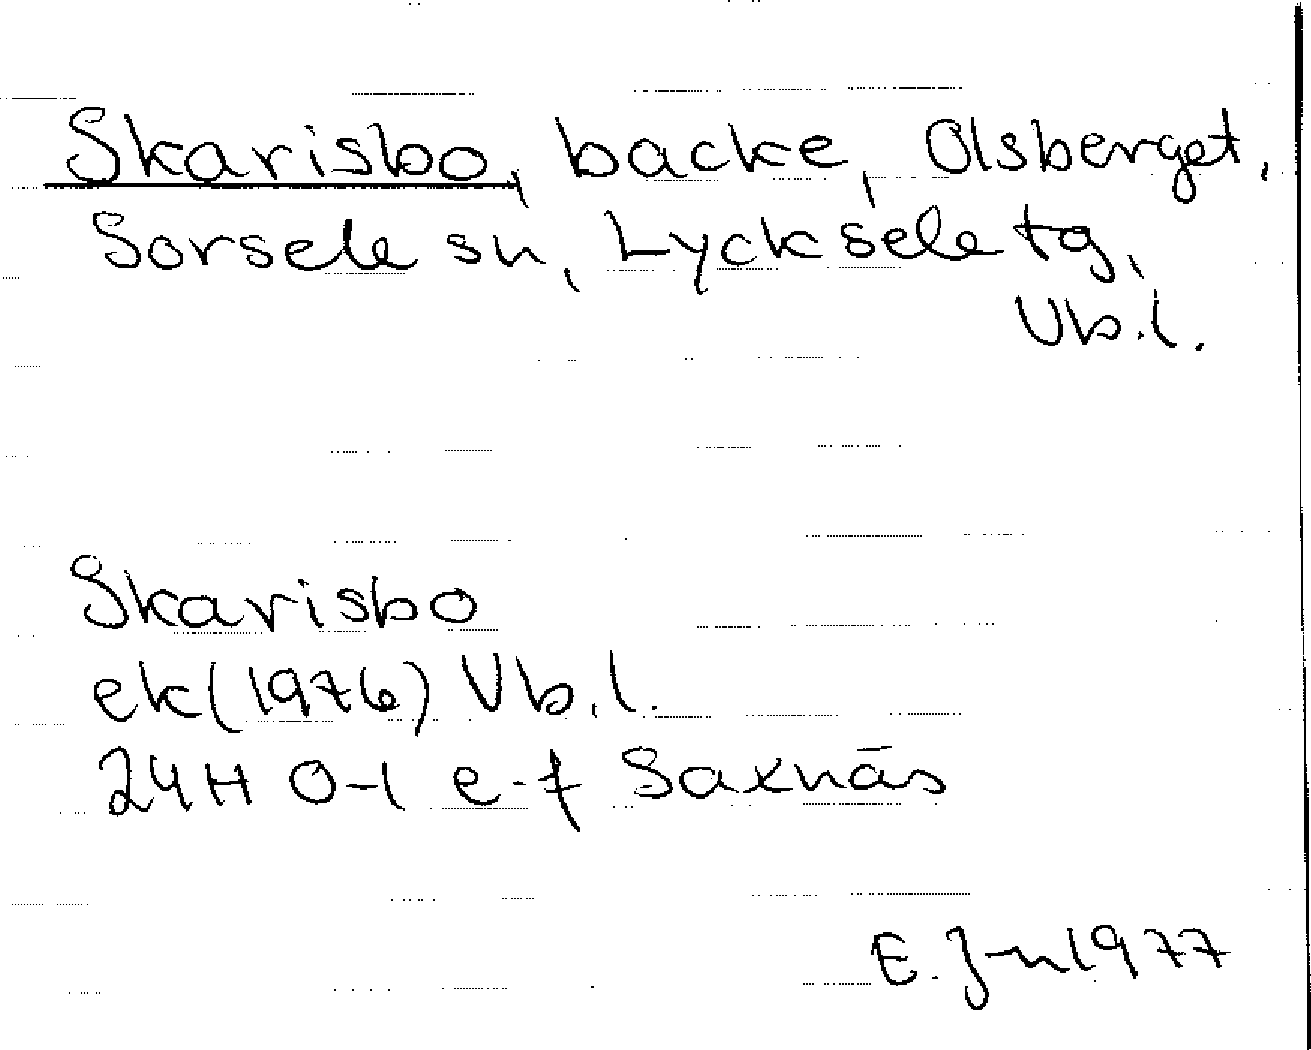 Skarisbo, backe, Olsberget,
Sorsele sn, Lycksele tg,
Vb.l.
Skarisbo
ek(1976) Vb.l.
24H 0-1 e-f Saxnäs
E. J-n 1977